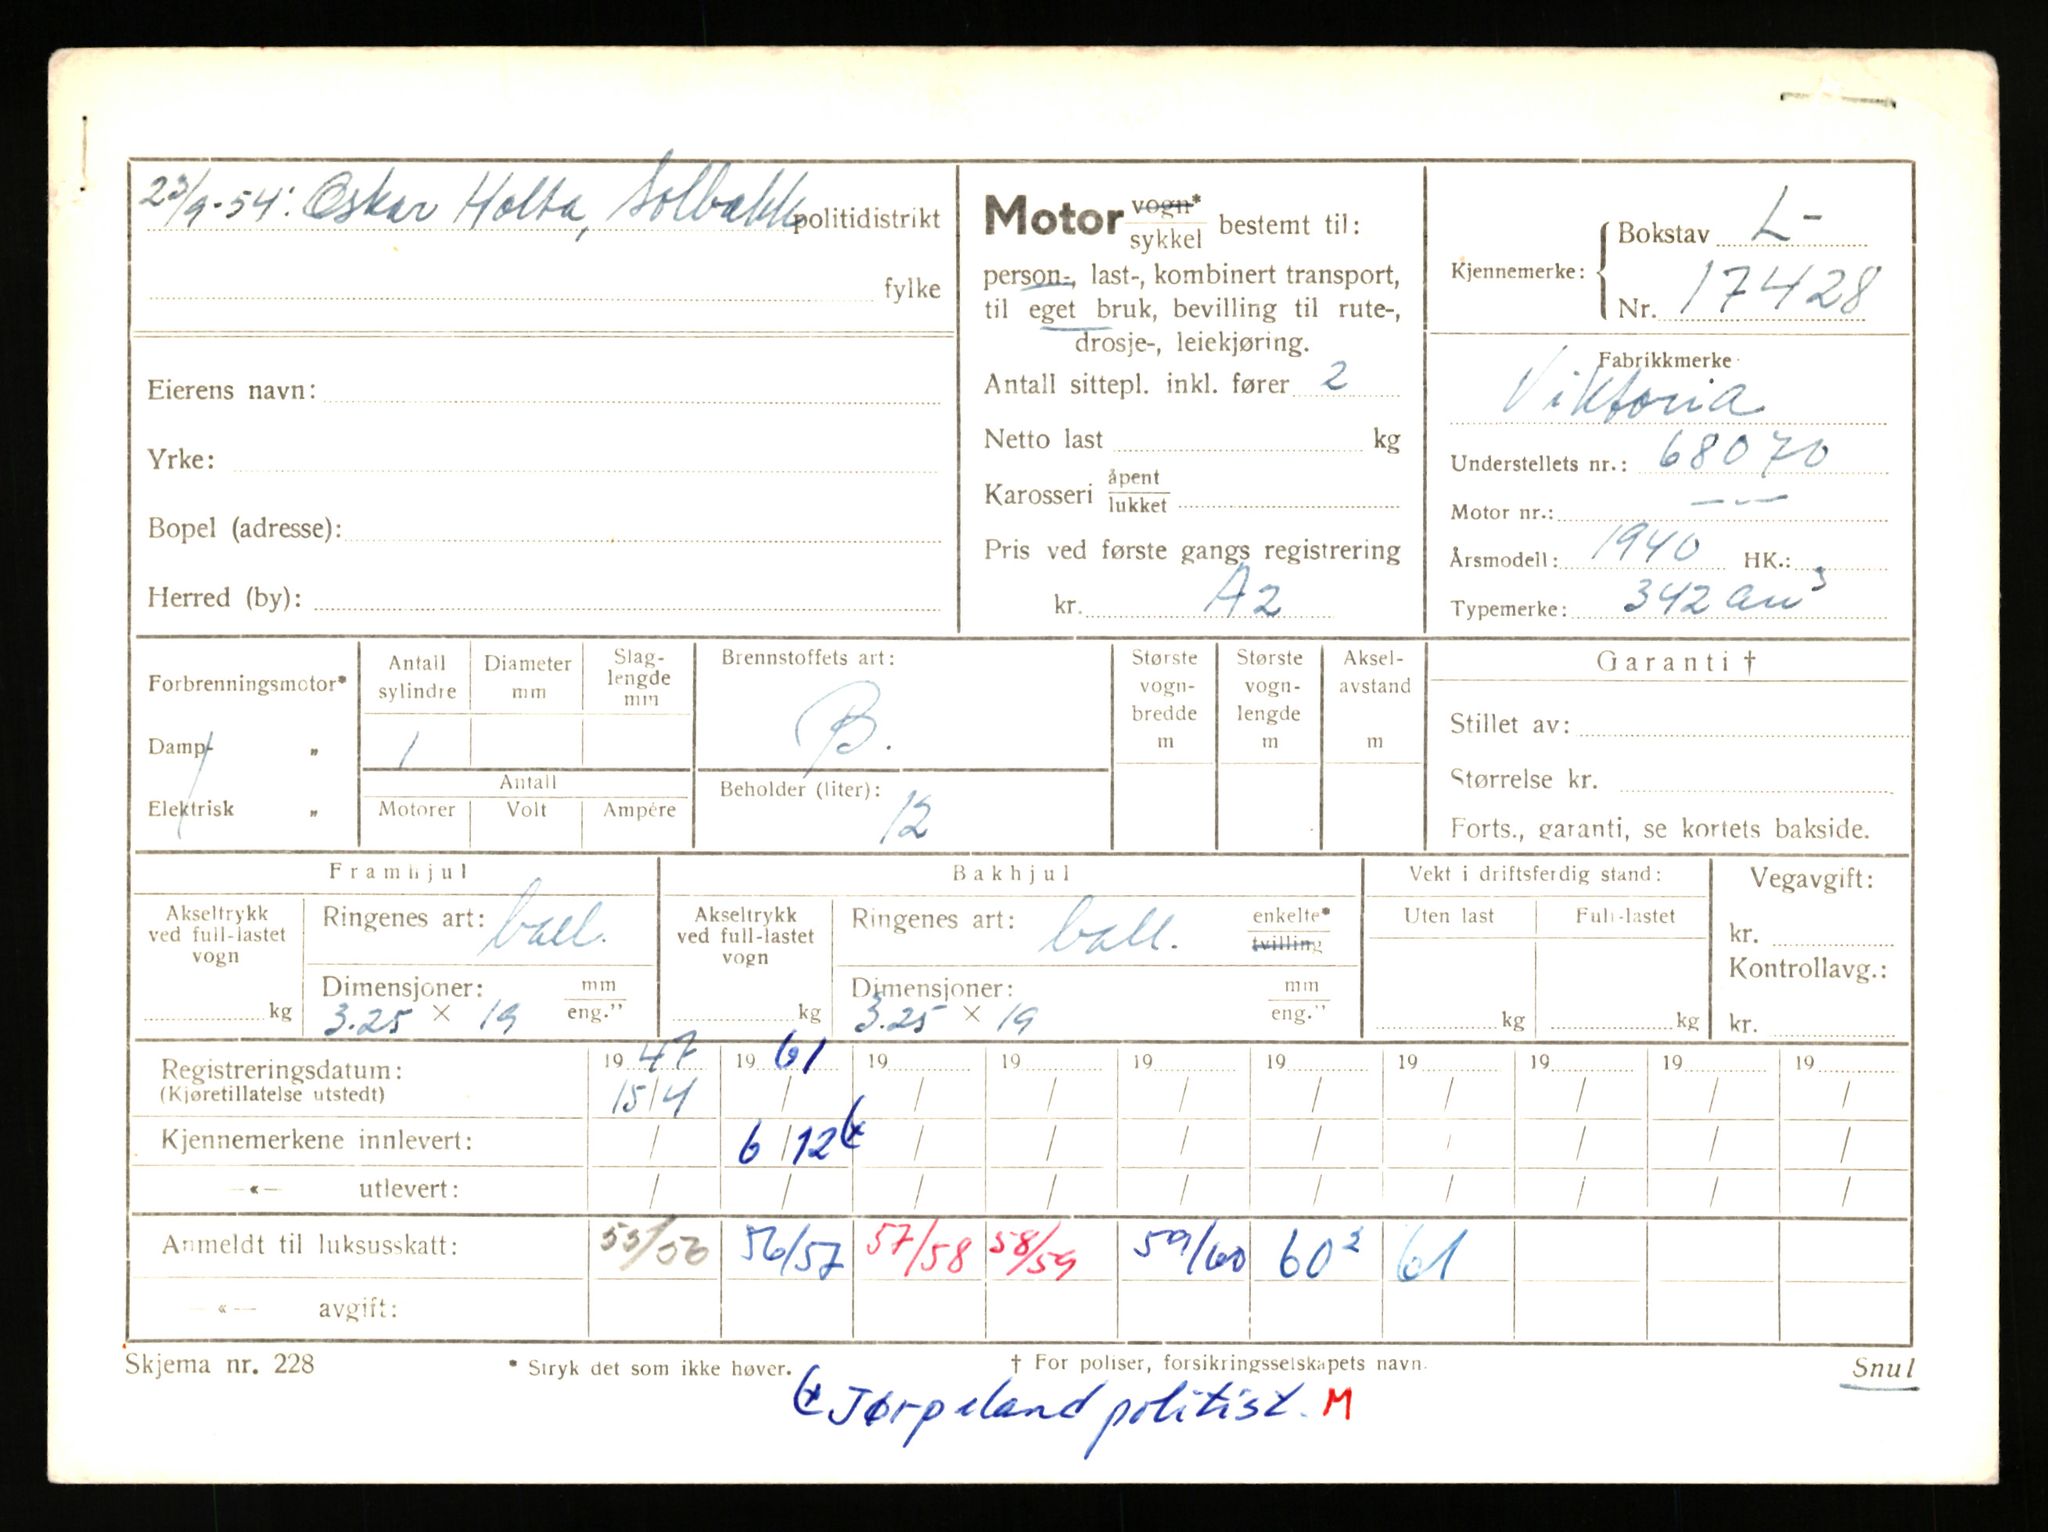 23/9-54: Oskar Holta, Solbakk politidistrikt
fylke
Eierens navn:
Yrke:
Bopel (adresse):
Herred (by):
Motor vogn* / sykkel bestemt til:
person-, last-, kombinert transport,
til eget bruk, bevilling til rute-,
drosje-, leiekjøring.
Antall sittepl. inkl. fører 2
Netto last kg
Karosseri åpent / lukket
Pris ved første gangs registrering
kr. A2
Kjennemerke: Bokstav L-
Nr. 17428
Fabrikkmerke
Viktoria
Understellets nr.: 68070
Motor nr.: — —
Årsmodell: 1940 HK.:
Typemerke: 342 cm³
Forbrenningsmotor*
Damp- „
Elektrisk „
Antall sylindre
Diameter mm
Slag-lengde mm
1
Antall
Motorer Volt Ampére
Brennstoffets art:
B.
Beholder (liter):
12
Største vogn-bredde m
Største vogn-lengde m
Aksel-avstand m
Garanti †
Stillet av:
Størrelse kr.
Forts., garanti, se kortets bakside.
Framhjul
Akseltrykk ved full-lastet vogn
kg
Ringenes art: ball.
Dimensjoner: mm / eng."
3.25 × 19
Bakhjul
Akseltrykk ved full-lastet vogn
kg
Ringenes art: ball. enkelte* / tvilling
Dimensjoner: mm / eng."
3.25 × 19
Vekt i driftsferdig stand:
Uten last Full-lastet
kg kg
Vegavgift:
kr.
Kontrollavg.:
kr.
Registreringsdatum: 19 47 19 61 19 19 19 19 19 19 19 19
(Kjøretillatelse utstedt) 15/4 / / / / / / / / /
Kjennemerkene innlevert: / 6/12 / / / / / / / /
—«— utlevert: / / / / / / / / / /
Anmeldt til luksusskatt: 55/56 56/57 57/58 58/59 59/60 60² 61
—«— avgift:
Skjema nr. 228 * Stryk det som ikke høver. † For poliser, forsikringsselskapets navn. Snul
Jørpeland politist. M